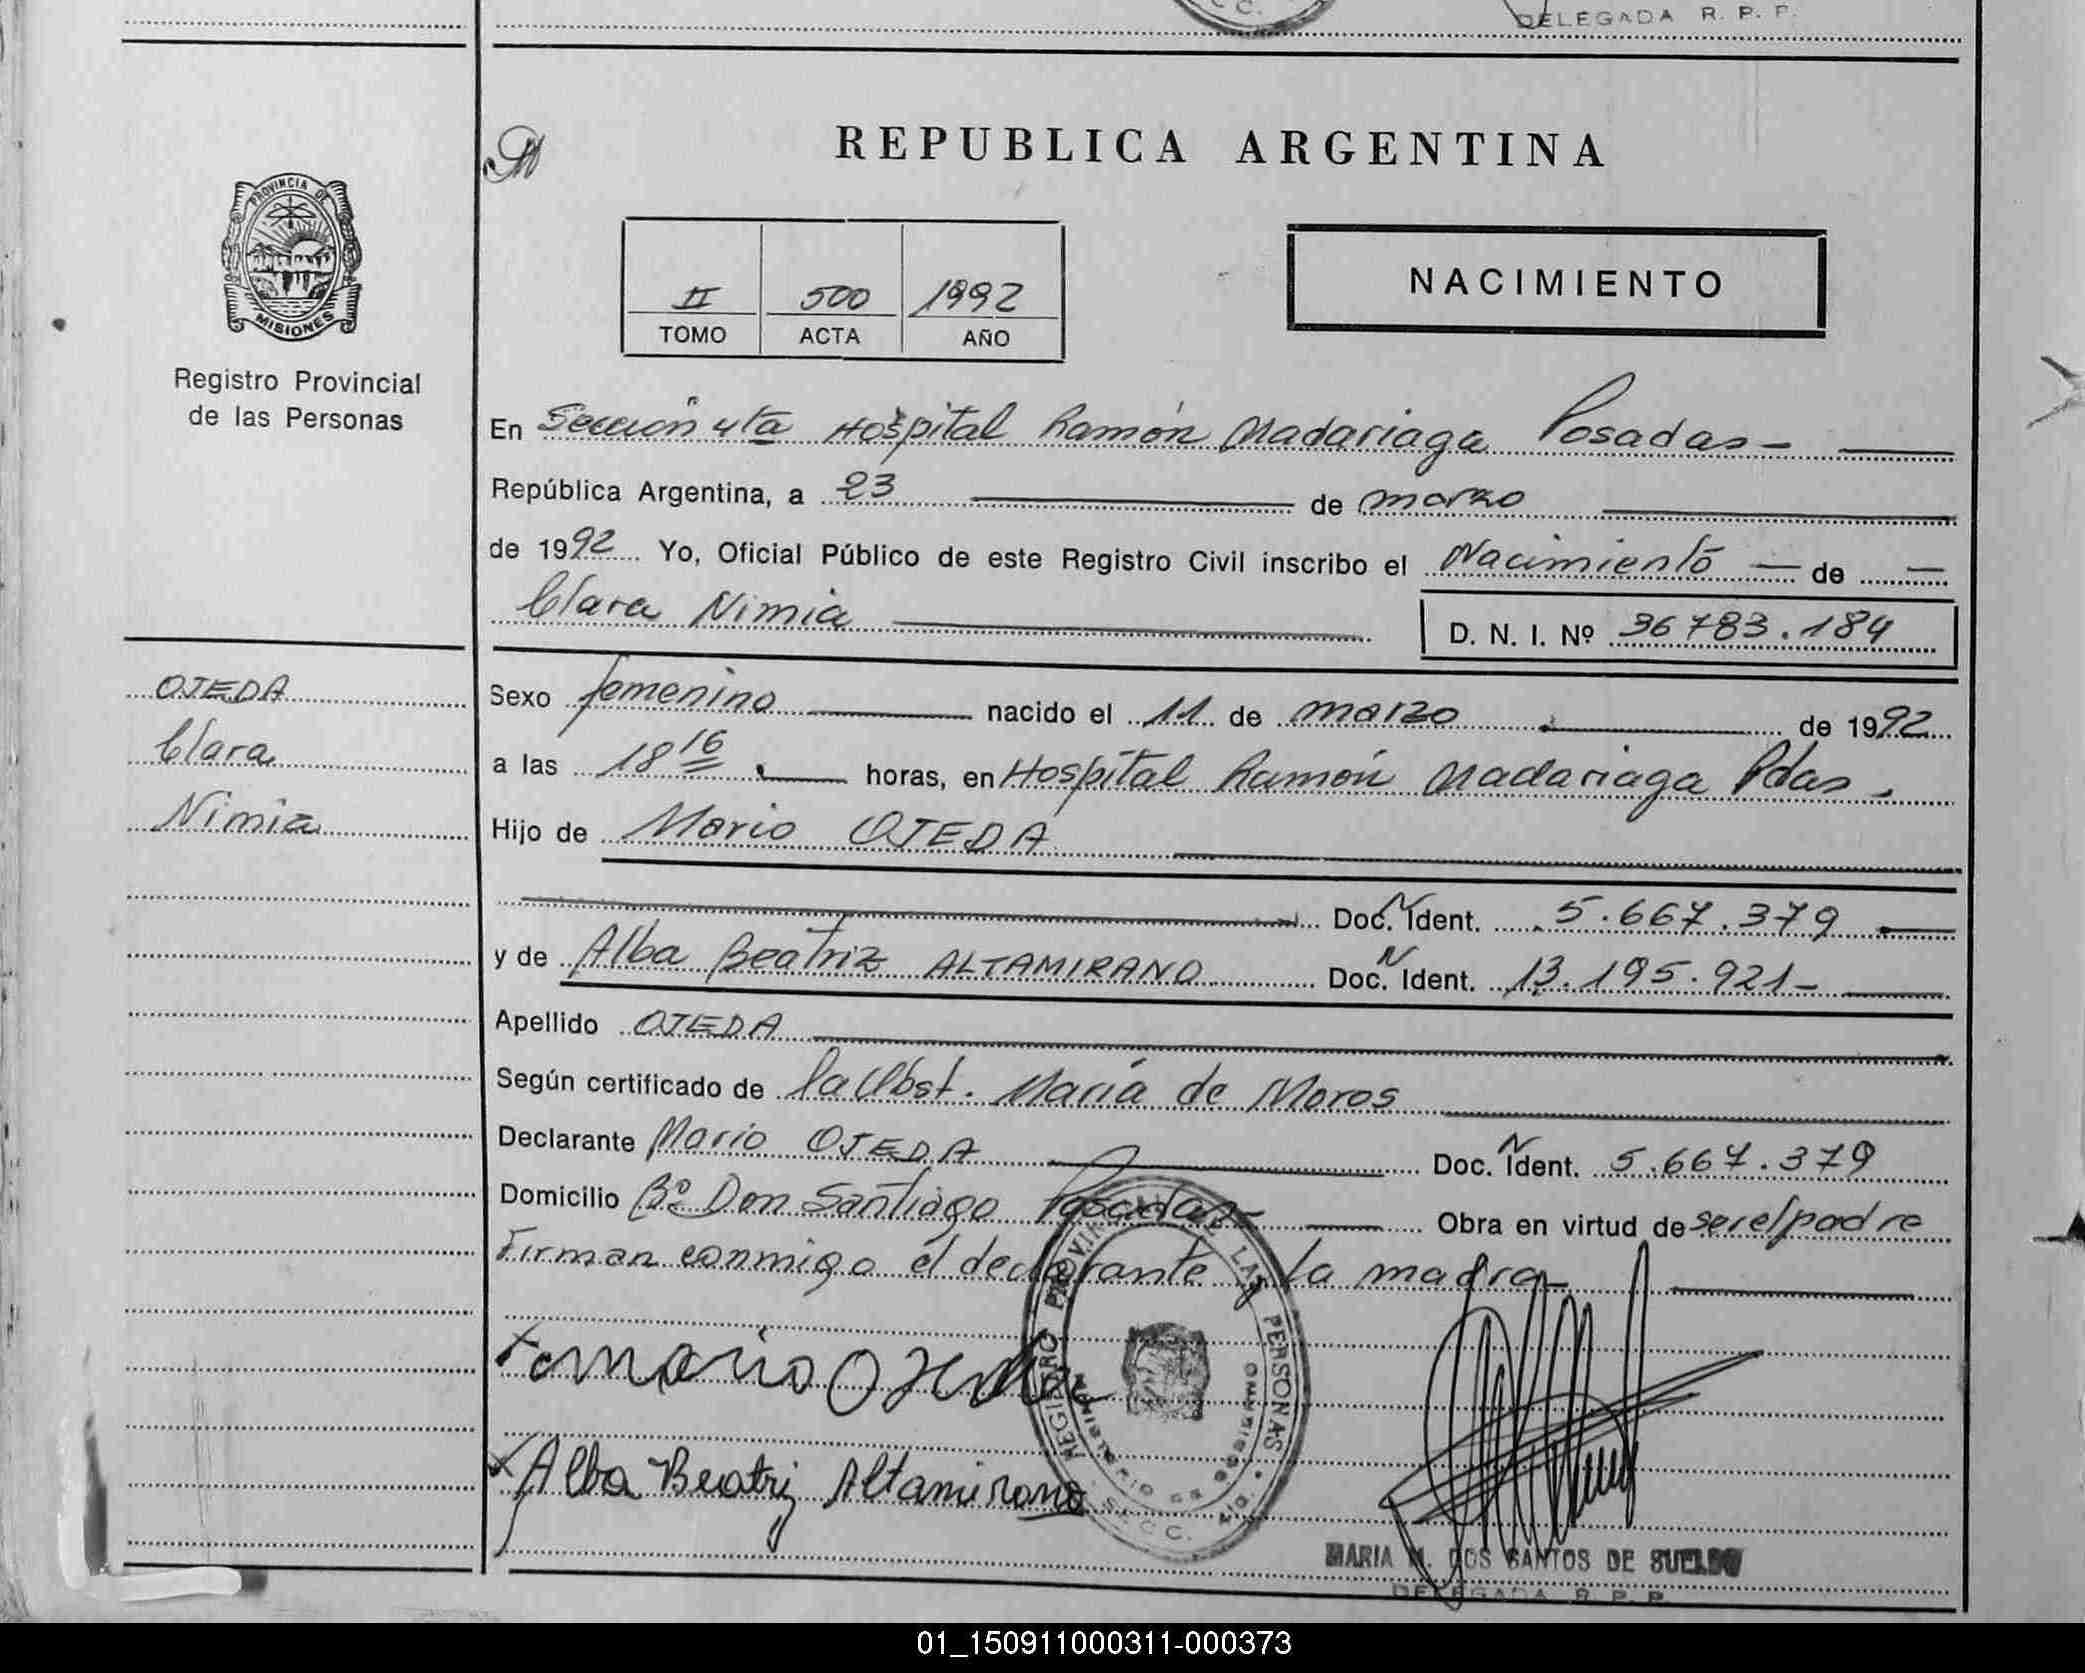 DELEGADA R. P. P.
REPUBLICA ARGENTINA
PROVINCIA DE
MISIONES
Registro Provincial
de las Personas
II 500 1992
TOMO ACTA AÑO
NACIMIENTO
En Sección 4ta Hospital Ramón Madariaga Posadas-
República Argentina, a 23 de marzo
de 1992 Yo, Oficial Público de este Registro Civil inscribo el Nacimiento de
Clara Nimia D. N. I. Nº 36783.184
OJEDA
Clara
Nimia
Sexo femenino nacido el 11 de marzo de 1992
a las 18 16 horas, en Hospital Ramón Madariaga Pdas.
Hijo de Mario OJEDA
Doc. N Ident. 5.667.379
y de Alba Beatriz ALTAMIRANO Doc. N Ident. 13.195.921-
Apellido OJEDA
Según certificado de la Obst. María de Moros
Declarante Mario OJEDA Doc. N Ident. 5.667.379
Domicilio Bº Don Santiago Posadas- Obra en virtud de ser el padre
Firman conmigo el declarante y la madre
REGISTRO PROVINCIAL DE LAS PERSONAS
MINISTERIO DE GOBIERNO
Mario Ojeda
Alba Beatriz Altamirano
MARIA M. DOS SANTOS DE SUELDO
DELEGADA R. P. P.
01_150911000311-000373